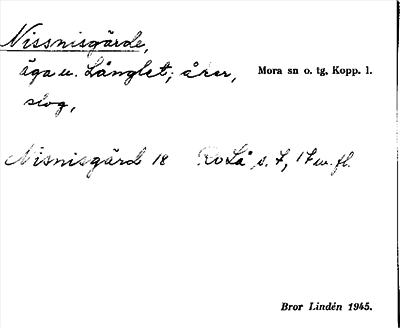 Nissnisgärde,
äga u. Långlet; åker, Mora sn o. tg, Kopp. l.
slog,
Nisnisgärd 18 RoLå, s. 7, 17 m. fl.
Bror Lindén 1945.